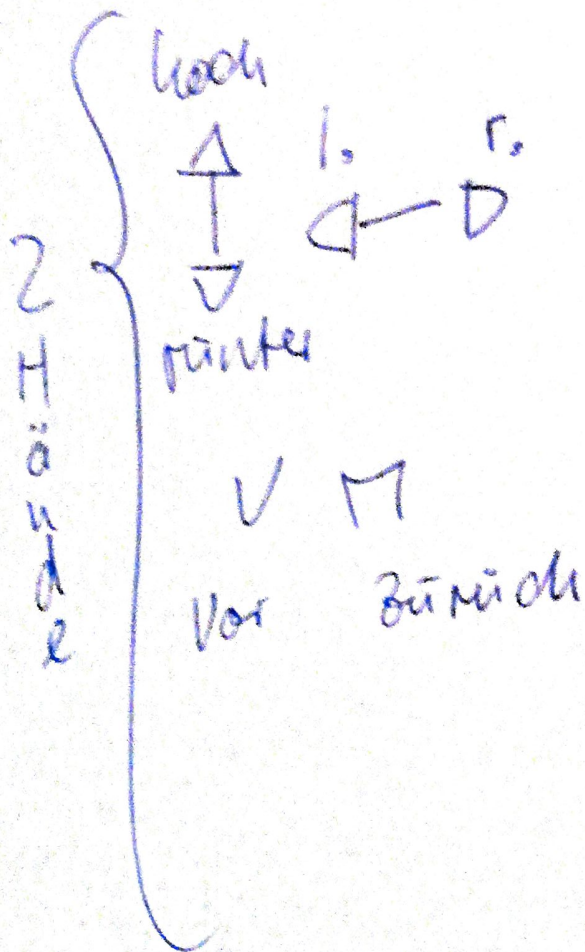 2 Hände
hoch
l. r.
runter
V R
Vor zurück